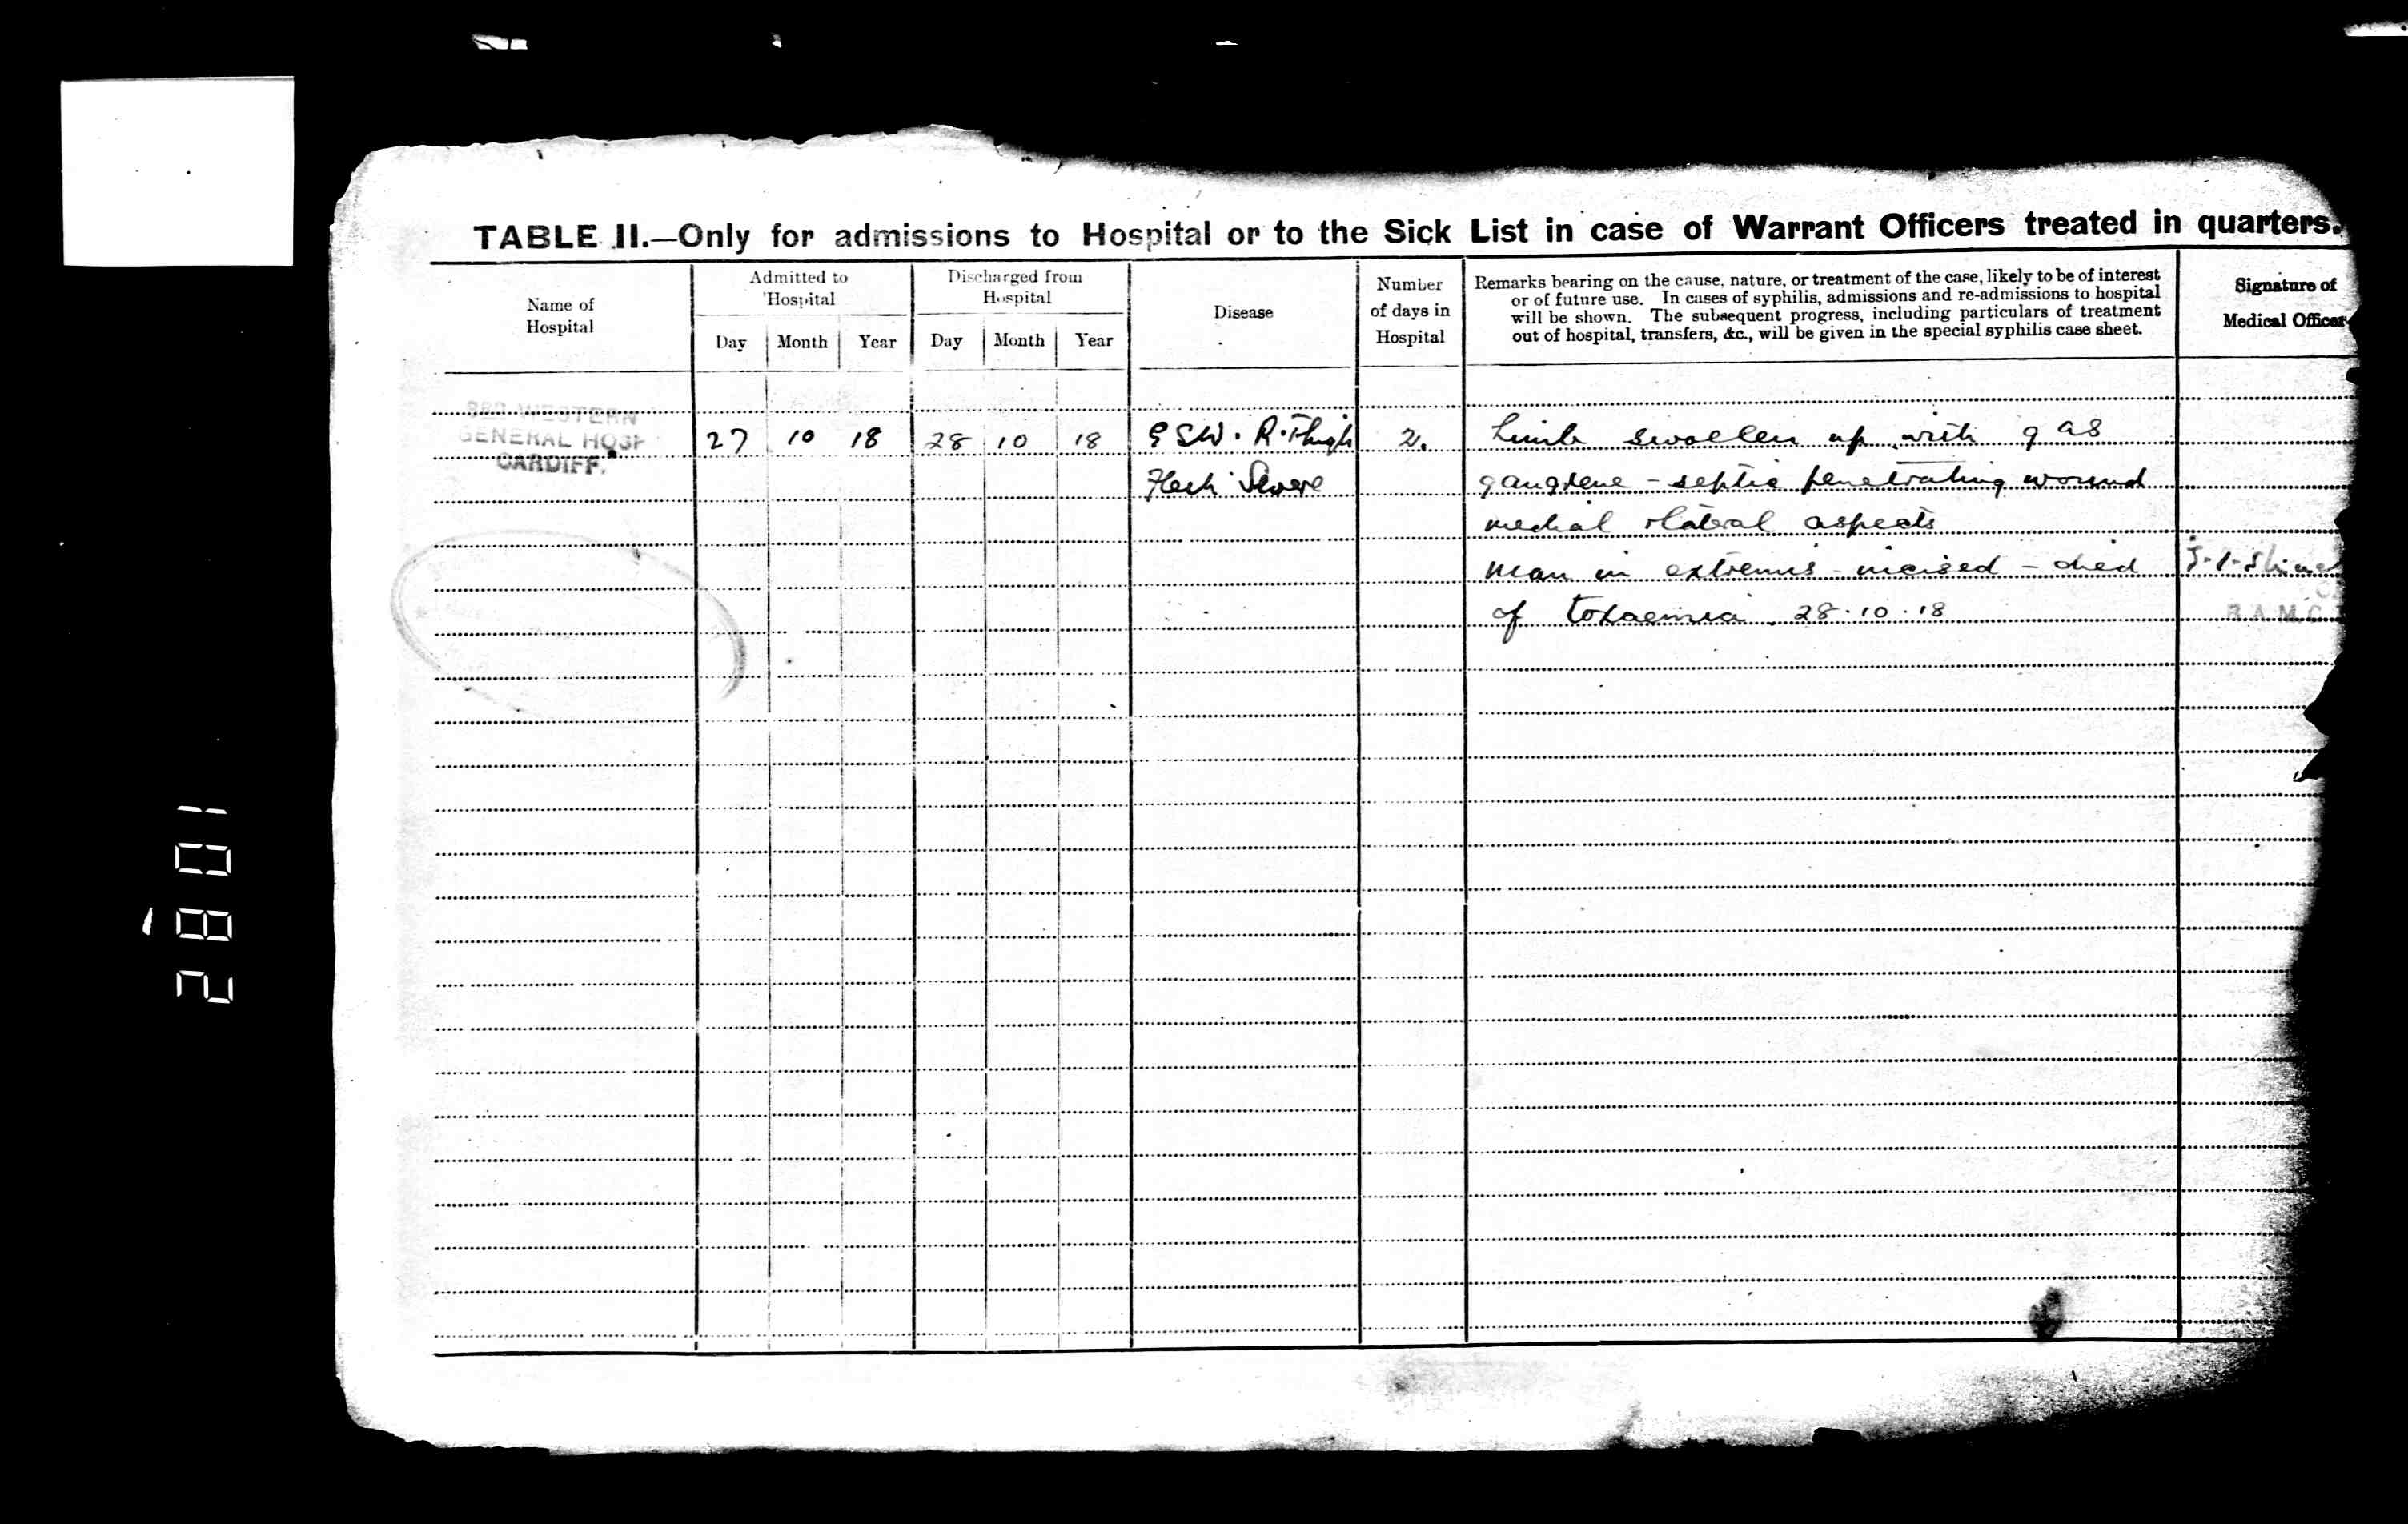 TABLE II.—Only for admissions to Hospital or to the Sick List in case of Warrant Officers treated in quarters.
Name of
Hospital
Admitted to
Hospital
Day Month Year
Discharged from
Hospital
Day Month Year
Disease
Number
of days in
Hospital
Remarks bearing on the cause, nature, or treatment of the case, likely to be of interest
or of future use. In cases of syphilis, admissions and re-admissions to hospital
will be shown. The subsequent progress, including particulars of treatment
out of hospital, transfers, &c., will be given in the special syphilis case sheet.
Signature of
Medical Officer
3RD WESTERN
GENERAL HOSP
CARDIFF.
27 10 18 28 10 18 GSW. R. Thigh 2. Limb swollen up with gas
Flesh Severe gangrene - septic penetrating wound
medial & lateral aspects
man in extremis - incised - died
of toxaemia 28.10.18
R.A.M.C.
2801